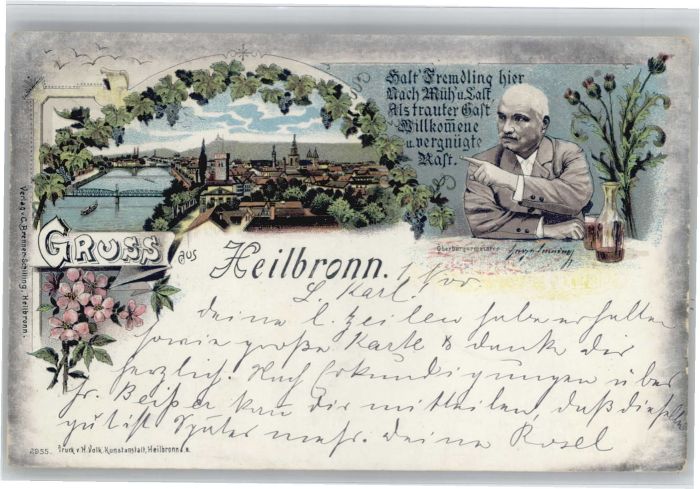 Halt' Fremdling hier
Nach Müh' u. Last
Als trauter Gast
Willkomene
u. vergnügte
Rast.
Oberbürgermeister
GRUSS aus Heilbronn.
Verlag v. C. Brenner-Schilling, Heilbronn.
L. Karl.
deine l. Zeilen habe erhalten
sowie große Karte & danke dir
herzlich. Nach Erkundigungen über
kan dir mitteilen, daß dieselbe
gut ist Später mehr. deine Rosel
2955. Druck v. H. Volk, Kunstanstalt, Heilbronn a. N.